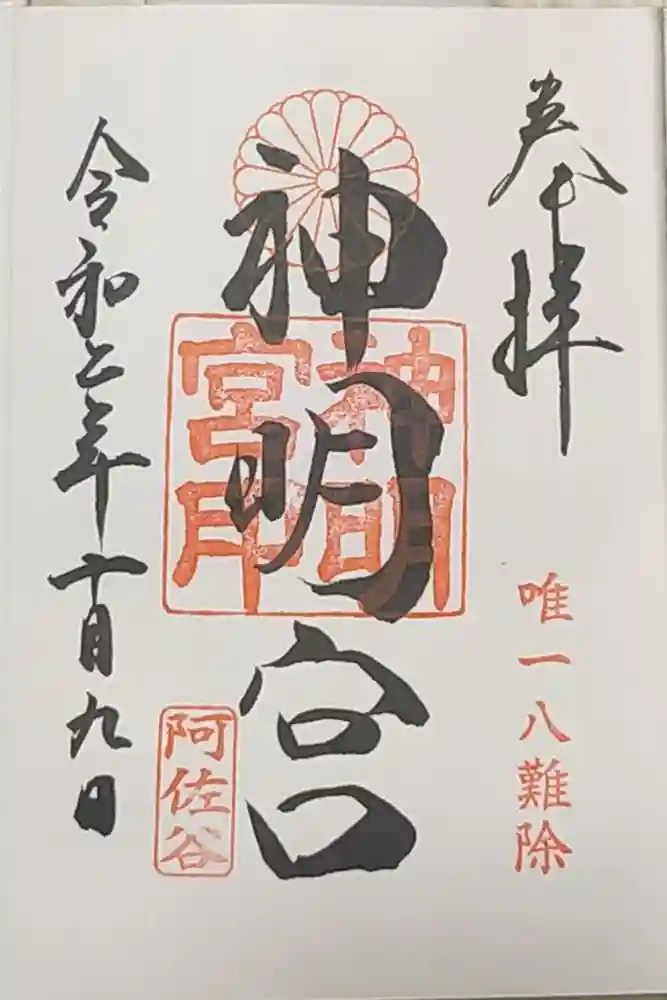 奉拝
唯一八難除
神明宮
神明
宮印
阿佐谷
令和二年十月九日